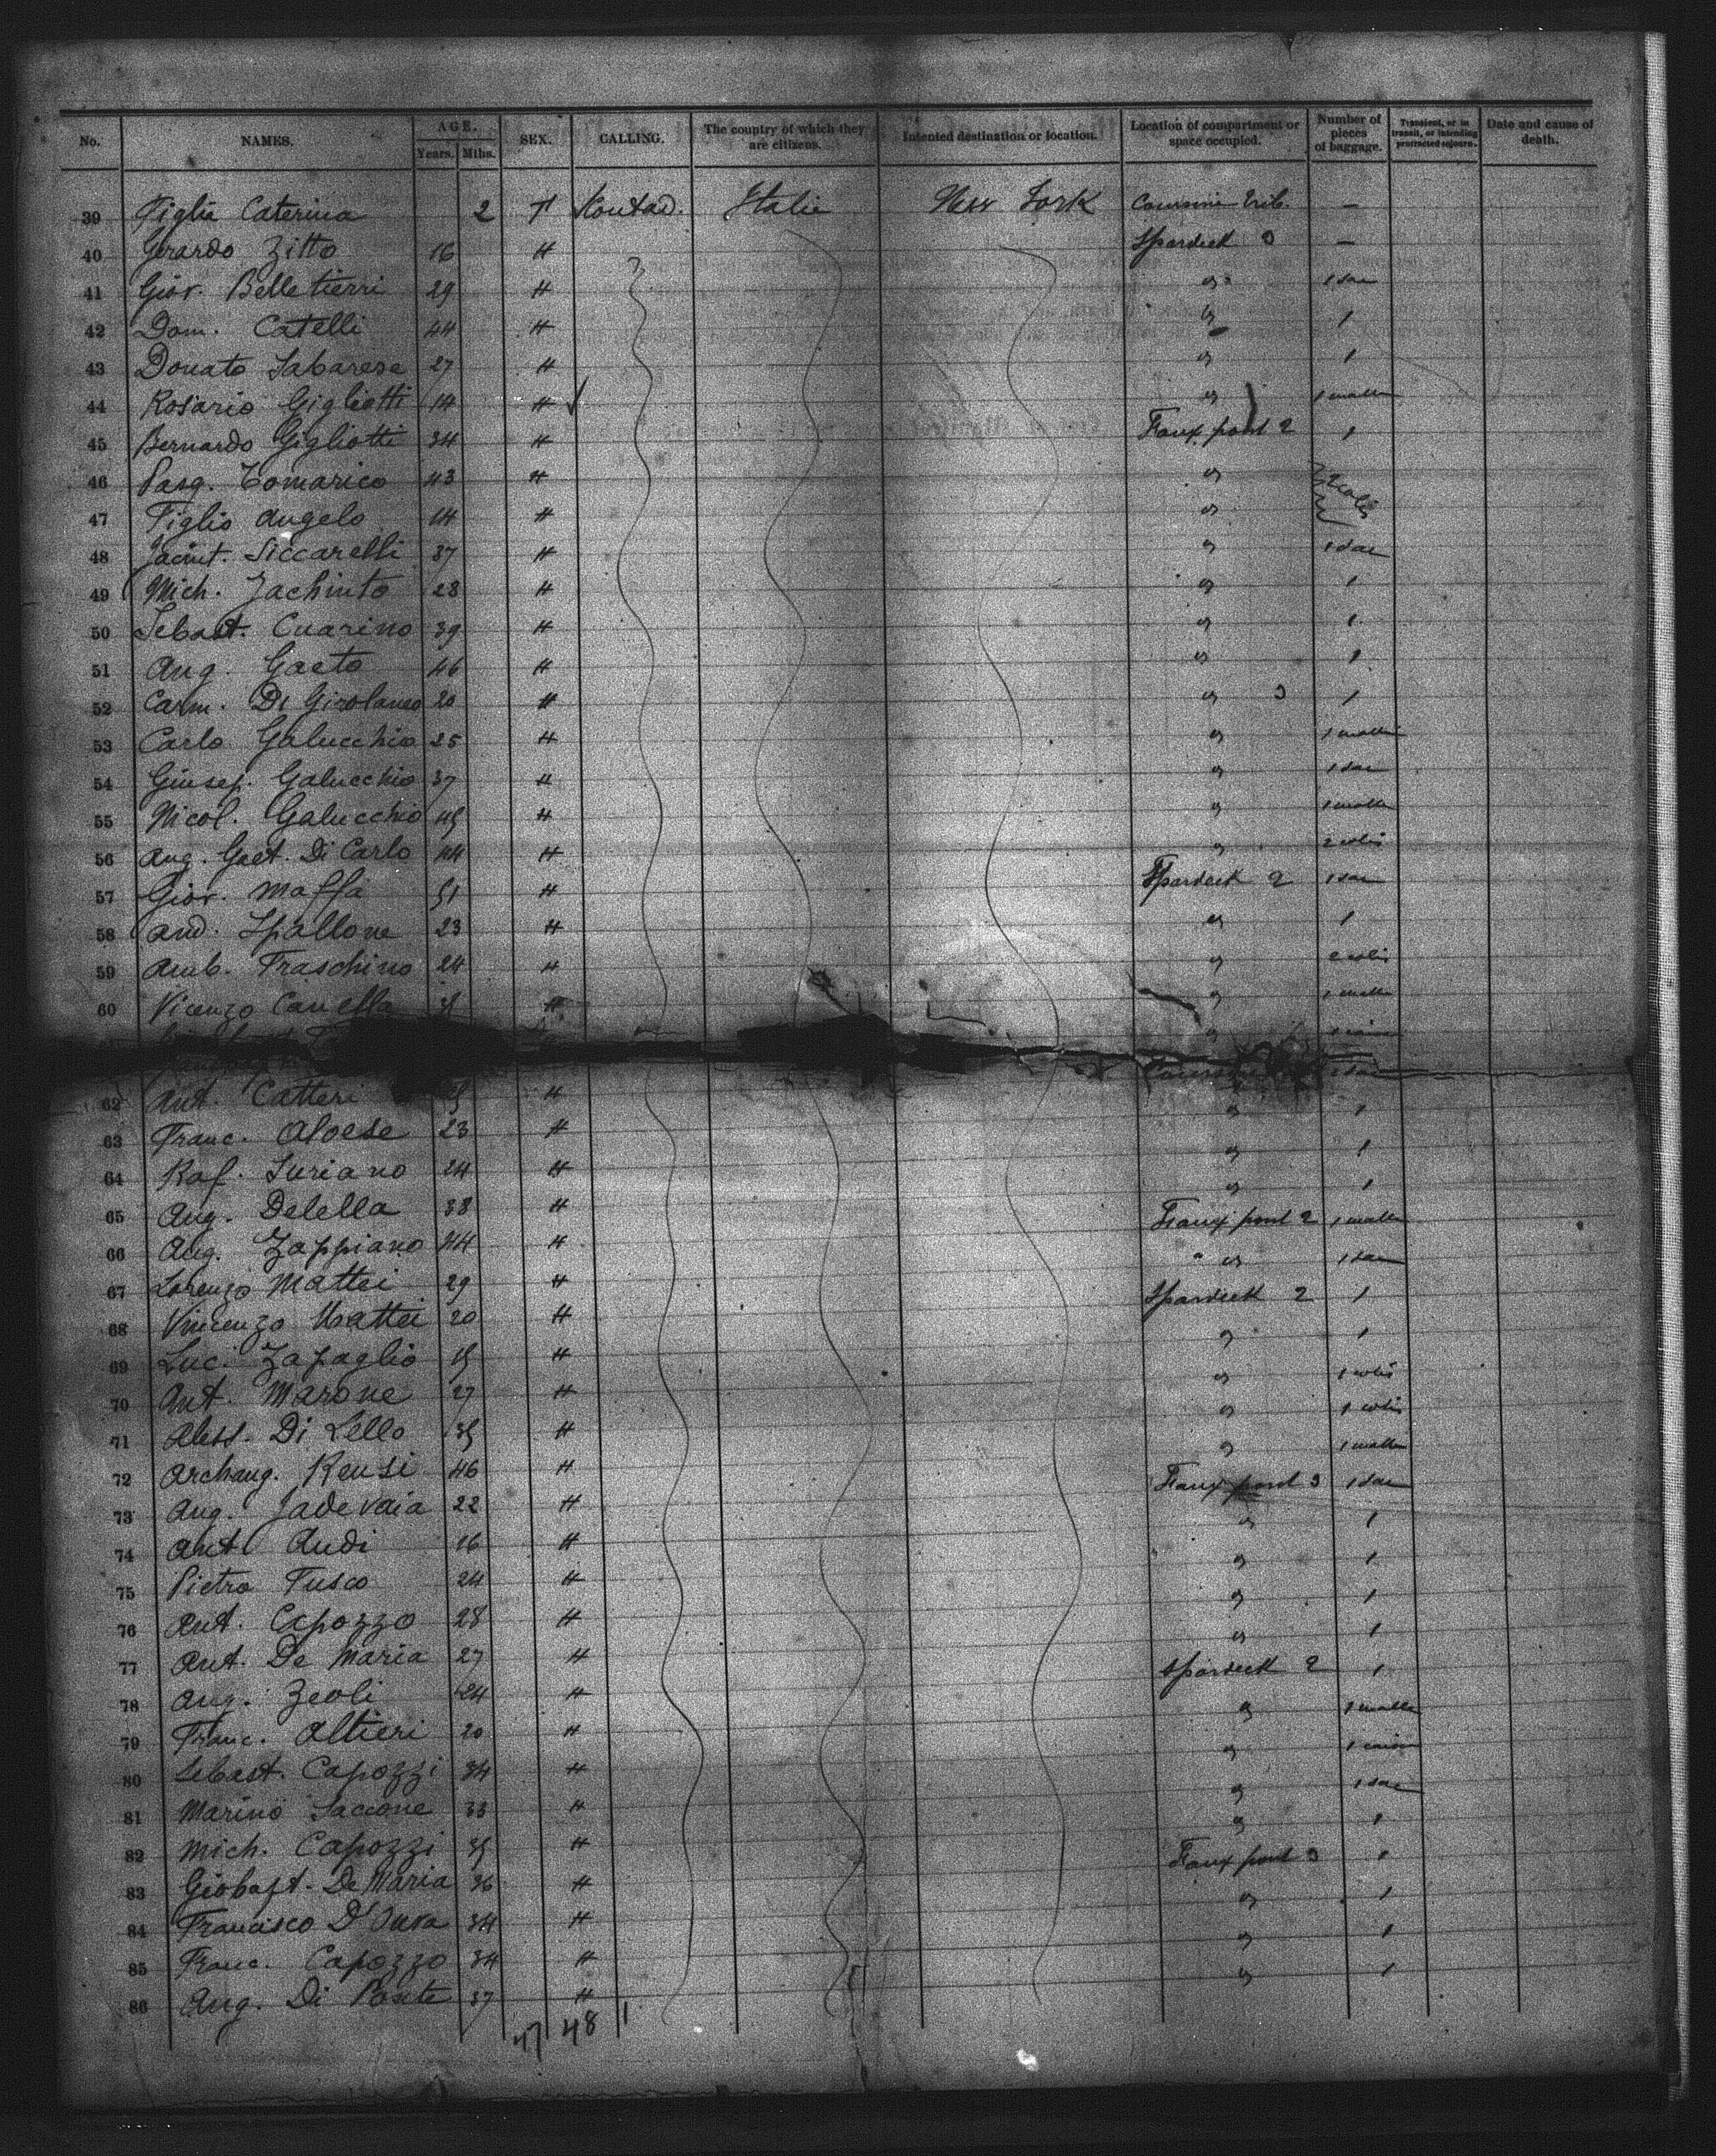 No. NAMES. AGE. Years. Mths. SEX. CALLING. The country of which they are citizens. Intented destination or location. Location of compartment or space occupied. Number of pieces of baggage. Transient, or in transit, or intending protracted sojourn. Date and cause of death.
39 Figlia Caterina 2 Italie New York —
40 Gerardo Zitto 16 H Spardeck 3 —
41 Giov. Belletierri 29 H 1 sac
42 Dom. Catelli 44 H 1
43 Donato Sabarese 27 H 1
44 Rosario Gigliotti 14 H 1 malle
45 Bernardo Gigliotti 34 H Faux pont 2 1
46 Pasq. Tomarico 43 H 2 colis
47 Figlio Angelo 14 H
48 Jacint. Siccarelli 37 H 1 sac
49 Mich. Jachinto 28 H 1
50 Sebast. Cuarino 39 H 1
51 Ang. Gaeto 46 H 1
52 Carm. Di Girolamo 20 H 3 1
53 Carlo Galucchio 25 H 1 malle
54 Giusep. Galucchio 37 H 1 sac
55 Nicol. Galucchio 45 H 1 malle
56 Ang. Gaet. Di Carlo 44 H 2 colis
57 Giov. Maffa 51 H Spardeck 2 1 sac
58 And. Spallone 23 H 1
59 Amb. Fraschino 24 H 2 colis
60 Vicenzo Canella H 1 malle
62 Ant. Catteri H 1
63 Franc. Aloese 23 H 1
64 Raf. Suriano 24 H 1
65 Ang. Delella 38 H Faux pont 2 1 malle
66 Ang. Zappiano 44 H " 1 sac
67 Lorenzo Mattei 29 H Spardeck 2 1
68 Vincenzo Mattei 20 H 1
69 Luc. Zapaglio 15 H 1 colis
70 Ant. Marone 27 H 1 colis
71 Aless. Di Lello 35 H 1 malle
72 Archang. Rensi 46 H Faux pont 3 1 sac
73 Ang. Jadevaia 22 H 1
74 Ant. Audi 16 H 1
75 Pietro Fusco 24 H 1
76 Ant. Capozzo 28 H 1
77 Ant. De Maria 27 H Spardeck 2 1
78 Ang. Zeoli 24 H 1 malle
79 Franc. Altieri 20 H 1
80 Sebast. Capozzi 34 H 1 sac
81 Marino Saccone 33 H 1
82 Mich. Capozzi 35 H Faux pont 3 1
83 Giobapt. De Maria 36 H 1
84 Francisco 34 H 1
85 Franc. Capozzo 34 H 1
86 Ang. Di Ponte 37 H
47 48 1